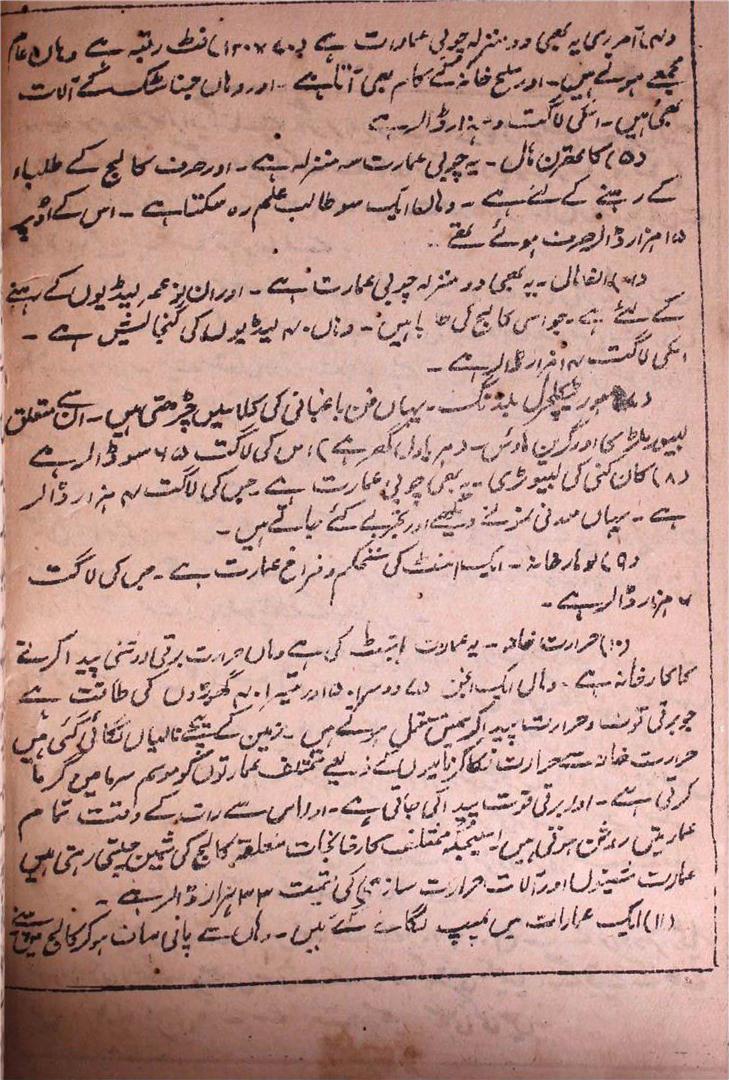 (۴) آمرری یہ بھی دو منزلہ چوبی عمارت ہے (۷۰×۱۲۰) فٹ رتبہ ہے وہاں عام
مجمعے ہوتے ہیں۔ اور سلح خانہ کے کام بھی آتا ہے۔ اور وہاں جمناسٹک کے آلات
بھی ہیں۔ اسکی لاگت ہزار ڈالر ہے
(۵) کاہقرن ہال۔ یہ چوبی عمارت سہ منزلہ ہے۔ اور صرف کالج کے طلباء
کے رہنے کے لئے ہے۔ وہاں ایک سو طالب علم رہ سکتا ہے۔ اس کے اوپر
۱۵ ہزار ڈالر صرف ہوئے تھے۔
(۶) الفا ہال۔ یہ بھی دو منزلہ چوبی عمارت ہے۔ اور ان نو عمر لیڈیوں کے رہنے
کے لئے ہے۔ جو اسی کالج کی ہیں۔ وہاں ۶۰ لیڈیوں کی گنجائش ہے۔
اسکی لاگت ہزار ڈالر ہے۔
(۷) ہورٹیکلچرل بلڈنگ۔ یہاں فن باغبانی کی کلاسیں پڑھتی ہیں۔ ان سے متعلق
لیبوریٹری اور گرین ہاؤس۔ (مہر ماول گھر ہے) اس کی لاگت ۶۵ سو ڈالر ہے
(۸) کان کنی کی لیبوٹری۔ یہ بھی چوبی عمارت ہے۔ جس کی لاگت ہزار ڈالر
ہے۔ یہاں معدنی نمونے دیکھے اور تجربے کئے جاتے ہیں۔
(۹) لوہار خانہ۔ ایک اینٹ کی مستحکم و فراخ عمارت ہے۔ جس کی لاگت
ہزار ڈالر ہے۔
(۱۰) حرارت خانہ۔ یہ عمارت اینٹ کی ہے وہاں حرارت برقی روشنی پیدا کرنے
کا کارخانہ ہے۔ وہاں ایک انجن ۷۵ دوسرا ۵۰ اور تیسرا ۶۰ گھوڑوں کی طاقت ہے
جو برقی قوت و حرارت پیدا کرنے میں مستعمل ہوتے ہیں۔ زمین کے نیچے نالیاں لگائی گئی ہیں
حرارت خانہ سے حرارت نکل کر نالیوں کے ذریعے مختلف عمارتوں کو موسم سرما میں گرمایا
کرتی ہے۔ اور برقی قوت پیدا کی جاتی ہے۔ اور اس سے رات کے وقت تمام
عمارتیں روشن ہوتی ہیں اسیجگہ مختلف کارخانجات متعلقہ کالج کی مشین چلتی رہتی ہیں
عمارت مشینوں اور آلات حرارت سازی کی قیمت ۳۳ ہزار ڈالر ہے۔
(۱۱) ایک عمارات میں پمپ لگائے گئے ہیں۔ وہاں سے پانی صاف ہو کر کالج میں